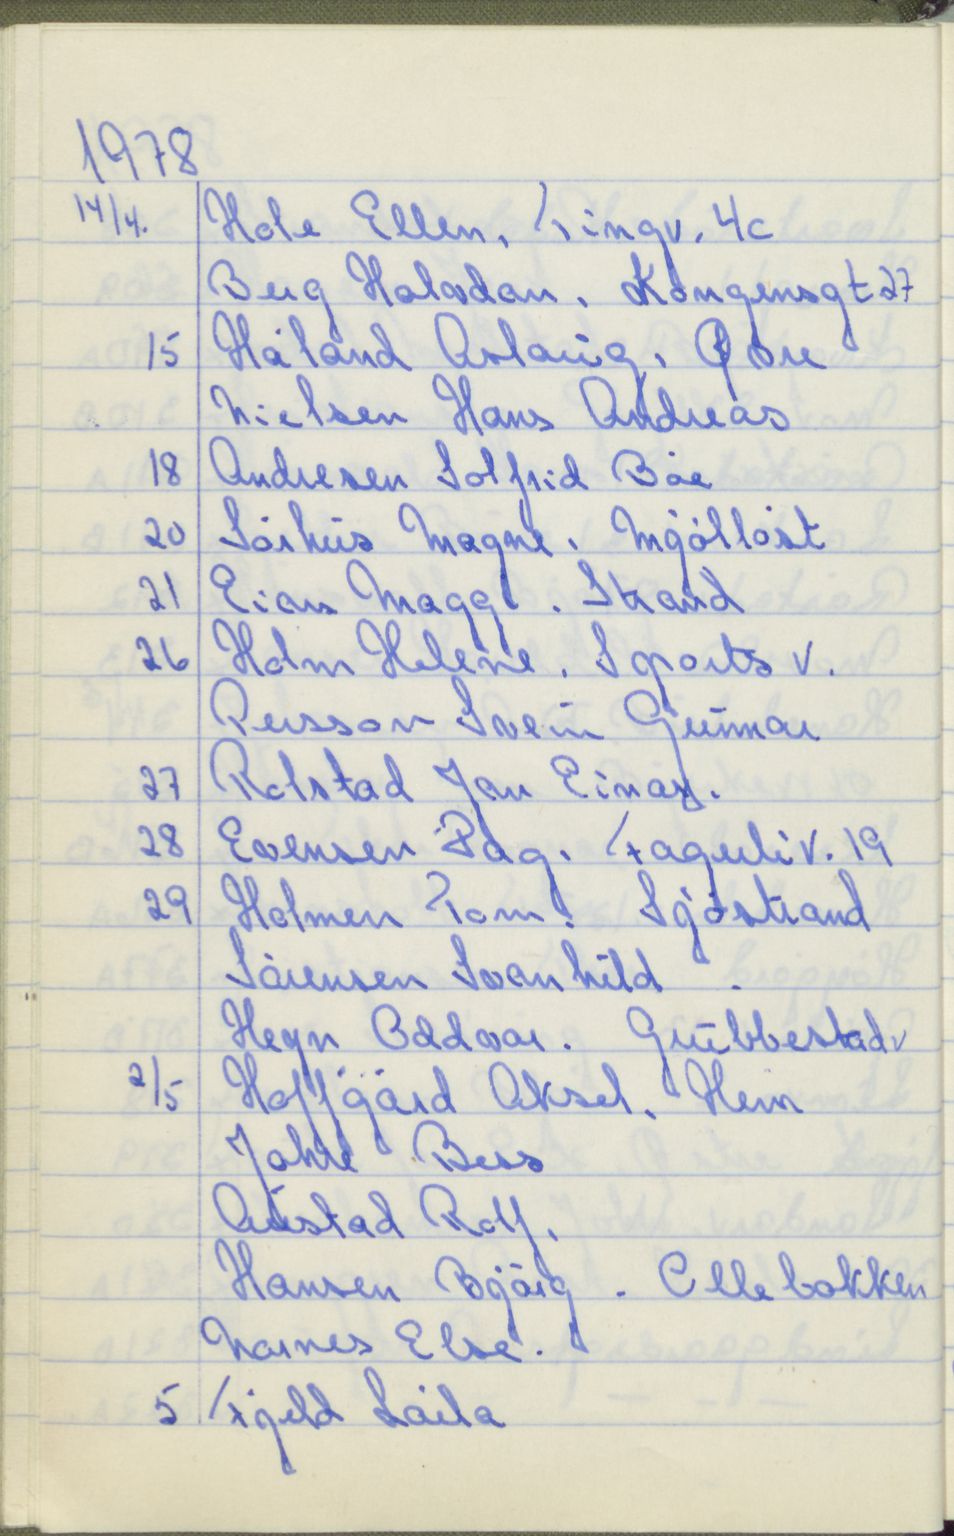 1978
14/4. Hole Ellen, Ringv. 4c
Berg Halvdan. Kongensgt 27
15 Håland Aslaug, Gåre
Nielsen Hans Andreas
18 Andresen Solfrid Bøe
20 Sørhus Magne. Mjølløst
21 Eian Maggi. Strand
26 Holm Helene. Sportsv.
Persson Svein Gunnar
27 Rolstad Jan Einar.
28 Evensen Dag. Fagerliv. 19
29 Holmen Tom. Sjøstrand
Sørensen Svanhild.
Hegn Oddvar. Grübbestadv
2/5 Hoffgård Aksel. Hem
Jahre Bus
Austad Rolf.
Hansen Bjørg. Ellebakken
Narnes Else.
5 Fjeld Laila